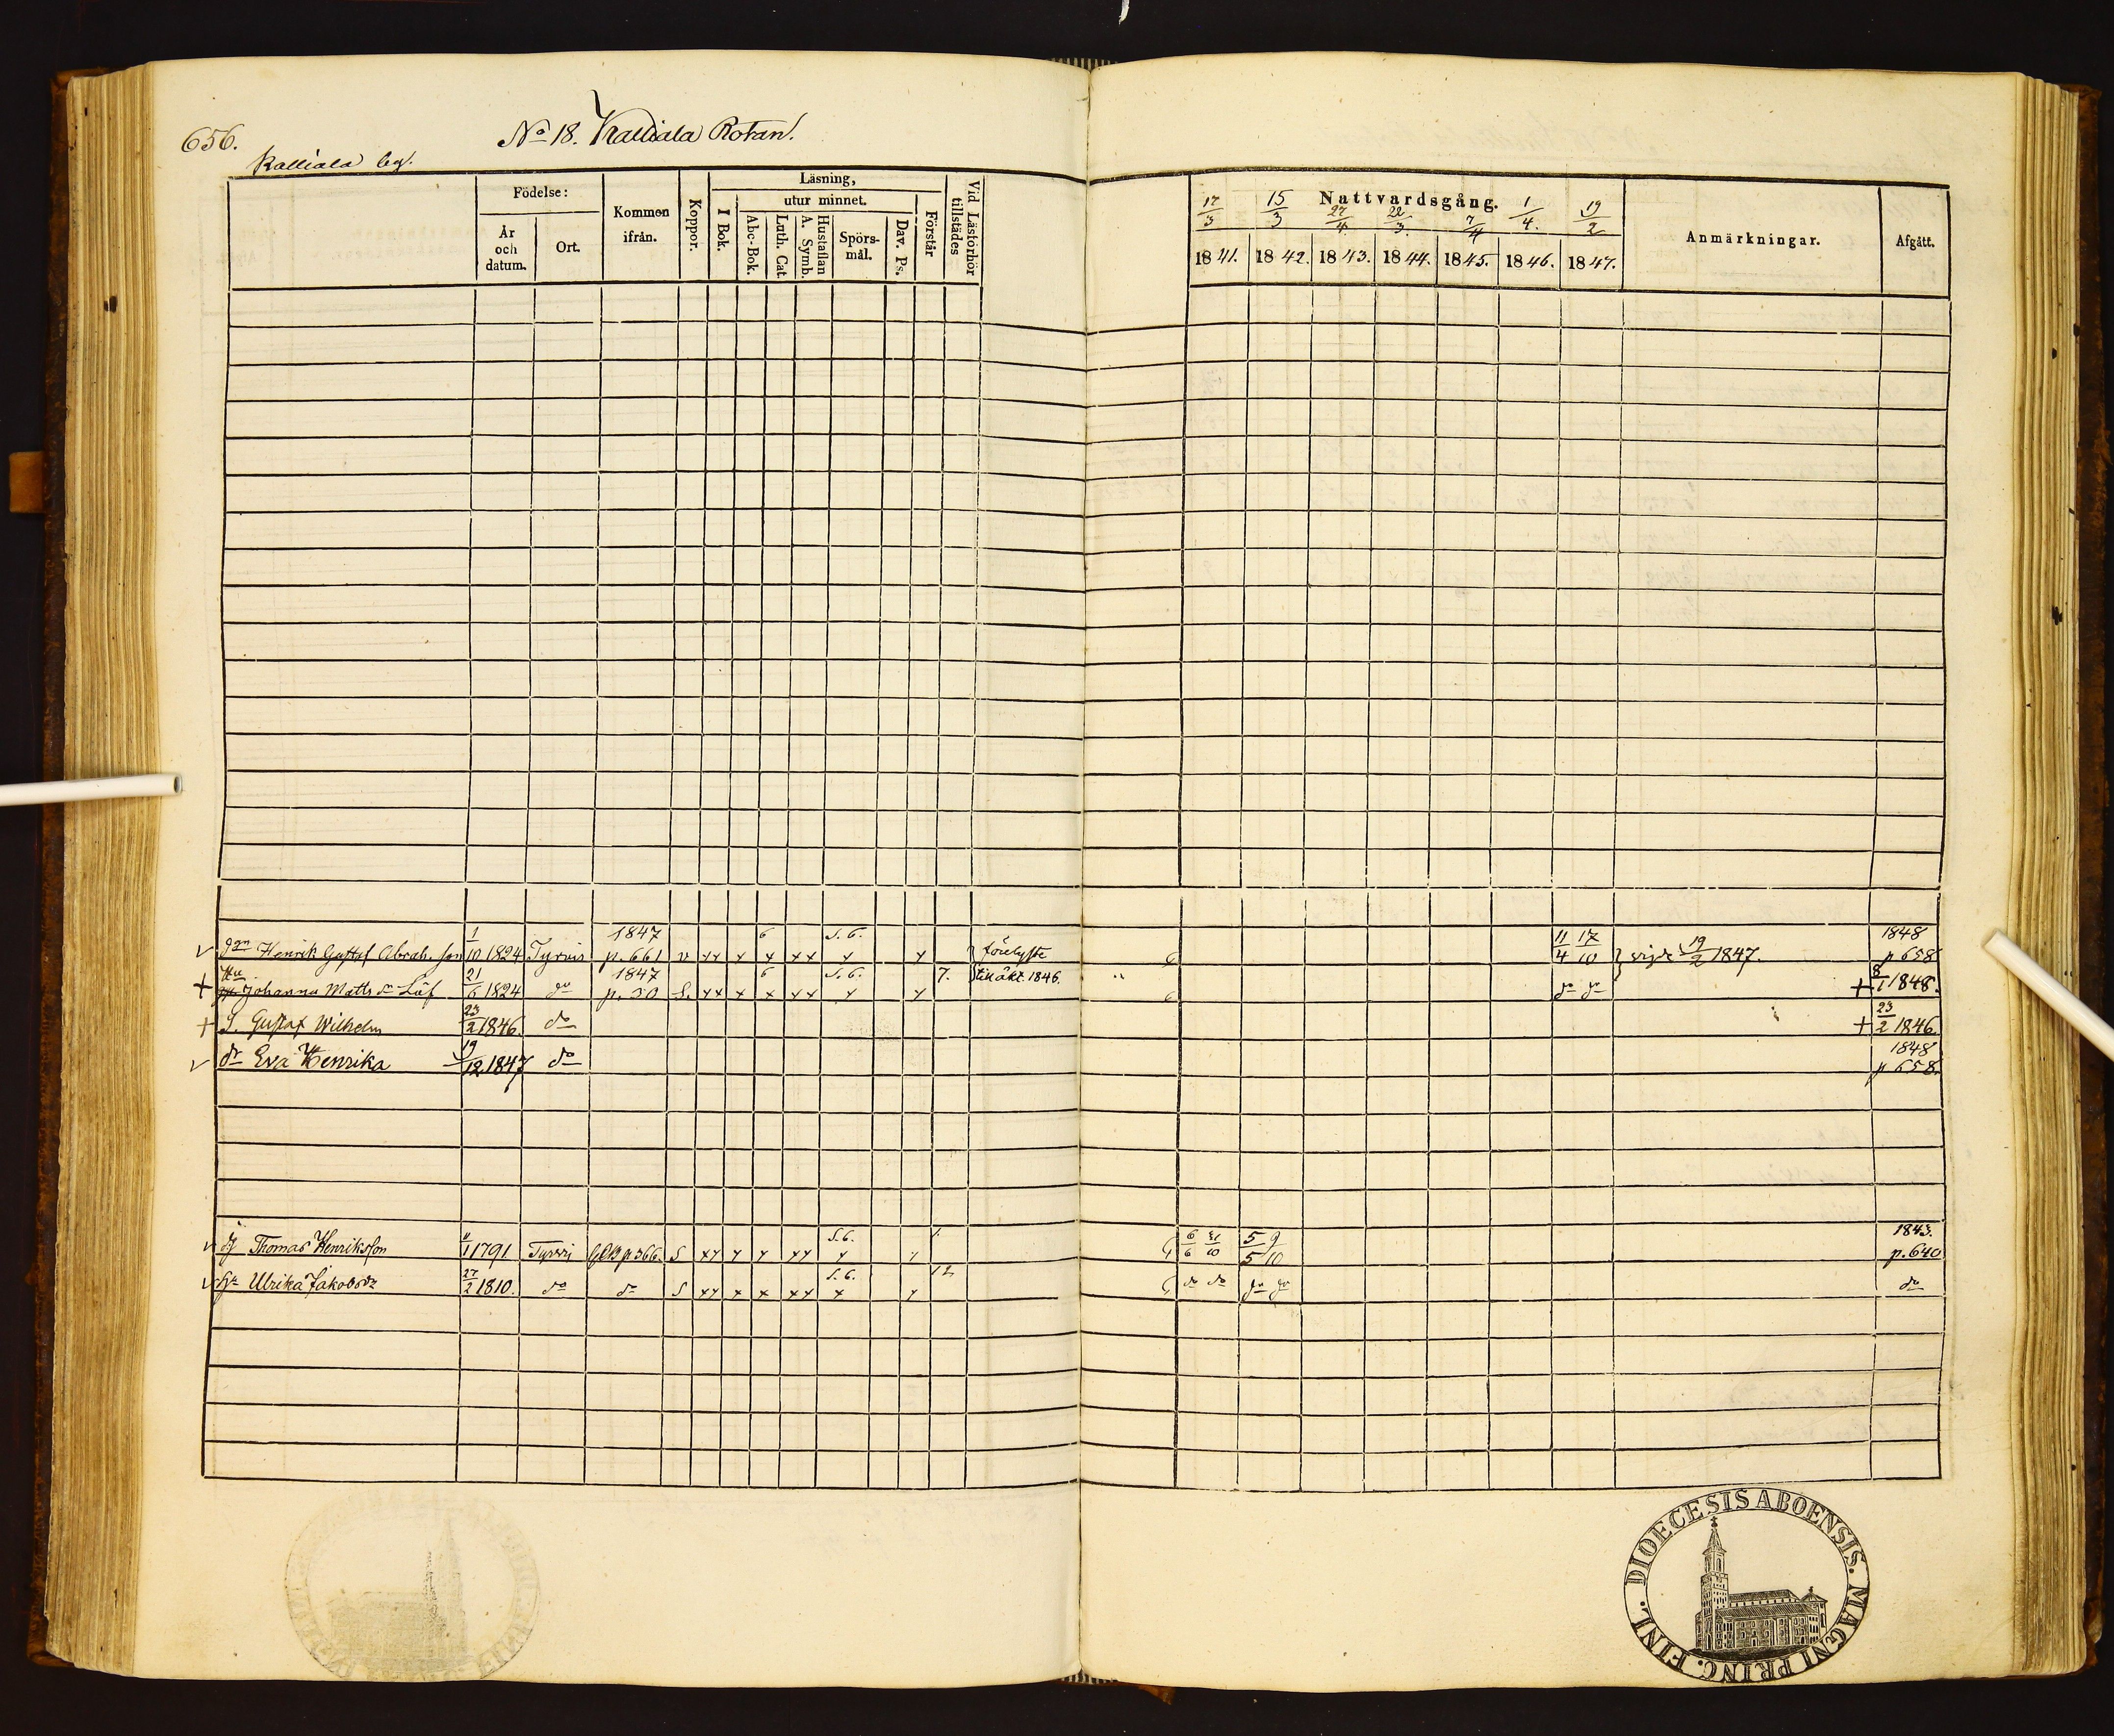 656.
No 18. Kalliala Rotan.
Kalliala by.
Födelse:
År och datum.
Ort.
Kommen ifrån.
Koppor.
Läsning,
I Bok.
utur minnet.
Abc-Bok.
Luth. Cat.
Hustaflan A. Symb.
Spörsmål.
Dav. Ps.
Förstår
Vid Läsförhör tillstädes
Nattvardsgång.
17/3 15/3 27/4 22/3 7/4 1/4 19/2
1841. 1842. 1843. 1844. 1845. 1846. 1847.
Anmärkningar.
Afgått.
Henrik Gustaf Abrah. son 1/10 1824 Tyrvis 1847 p. 661 v xx x 6 x xx S. 6. x x förelyste 11/4 17/10 vigde 19/2 1847. 1848 p 658
+ Johanna Matts dr Löf 21/6 1824 do 1847 p. 50 S. xx x 6 x xx S. 6. x x 7. till äkt. 1846. do do + 8/1 1848.
+ S. Gustaf Wilhelm 23/2 1846. do + 23/2 1846.
dr Eva Henrika 19/12 1847 do 1848 p 658.
Thomas Henriksson 1/1 1791 Tyrvis GCB p 366. S xx x x xx S. 6. x x 1. 6/6 31/10 5/5 9/10 1843. p. 640
Ulrika Jakobsdr 27/2 1810. do do S xx x x xx S. 6. x x 12 do do do do do
DIOECESIS ABOENSIS. MAGNI PRINC. FINL.